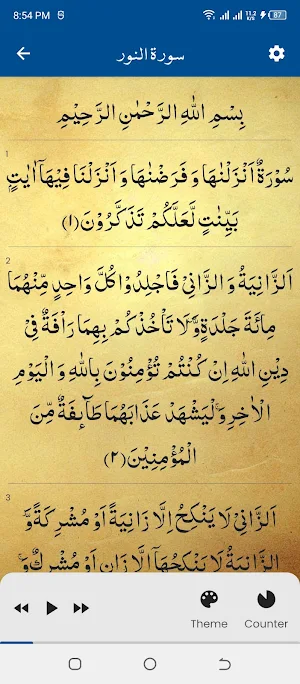 8:54 PM
11.2 K/s 87
سورة النور
بِسْمِ اللّٰهِ الرَّحْمٰنِ الرَّحِیْمِ
1
سُوْرَةٌ اَنْزَلْنٰهَا وَ فَرَضْنٰهَا وَ اَنْزَلْنَا فِیْهَاۤ اٰیٰتٍۭ
بَیِّنٰتٍ لَّعَلَّكُمْ تَذَكَّرُوْنَ(۱)
2
اَلزَّانِیَةُ وَ الزَّانِیْ فَاجْلِدُوْا كُلَّ وَاحِدٍ مِّنْهُمَا
مِائَةَ جَلْدَةٍ۪ وَّ لَا تَاْخُذْكُمْ بِهِمَا رَاْفَةٌ فِیْ
دِیْنِ اللّٰهِ اِنْ كُنْتُمْ تُؤْمِنُوْنَ بِاللّٰهِ وَ الْیَوْمِ
الْاٰخِرِۚ وَ لْیَشْهَدْ عَذَابَهُمَا طَآىٕفَةٌ مِّنَ
الْمُؤْمِنِیْنَ(۲)
3
اَلزَّانِیْ لَا یَنْكِحُ اِلَّا زَانِیَةً اَوْ مُشْرِكَةً٘ وَّ
الزَّانِیَةُ لَا یَنْكِحُهَاۤ اِلَّا زَانٍ اَوْ مُشْرِكٌۚ وَ
Theme
Counter